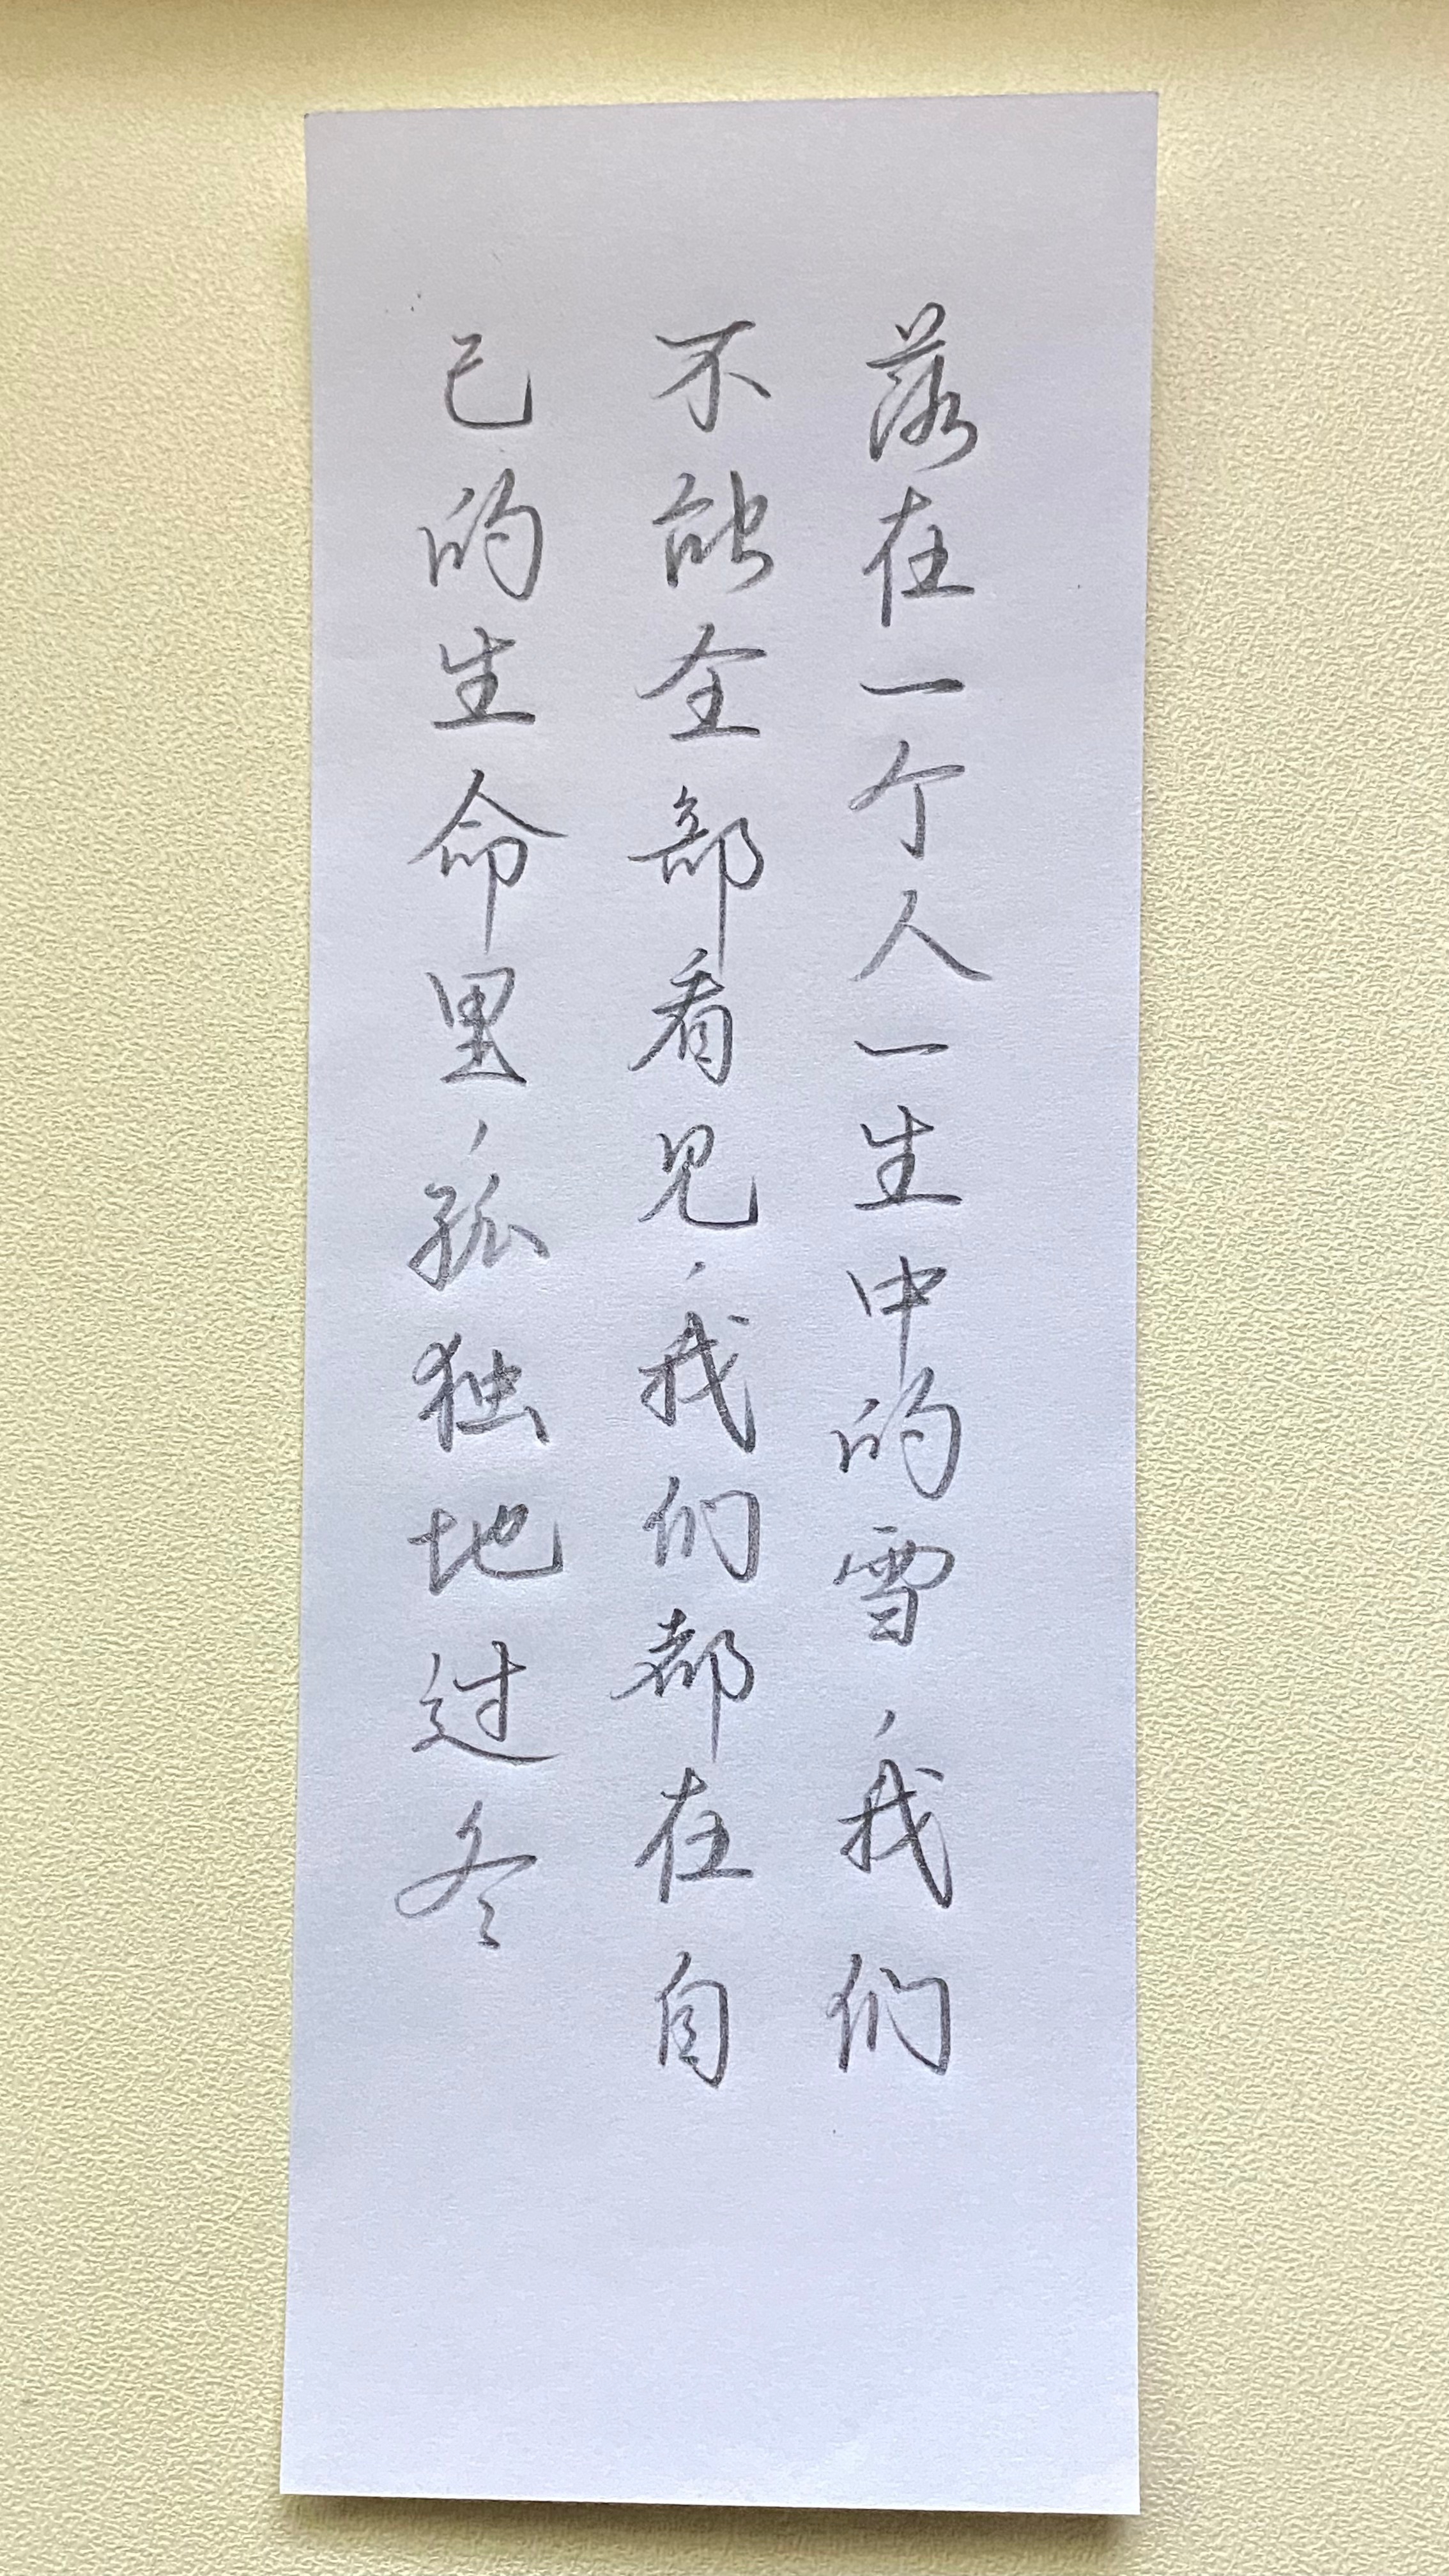 落在一个人一生中的雪，我们
不能全部看见，我们都在自
己的生命里，孤独地过冬